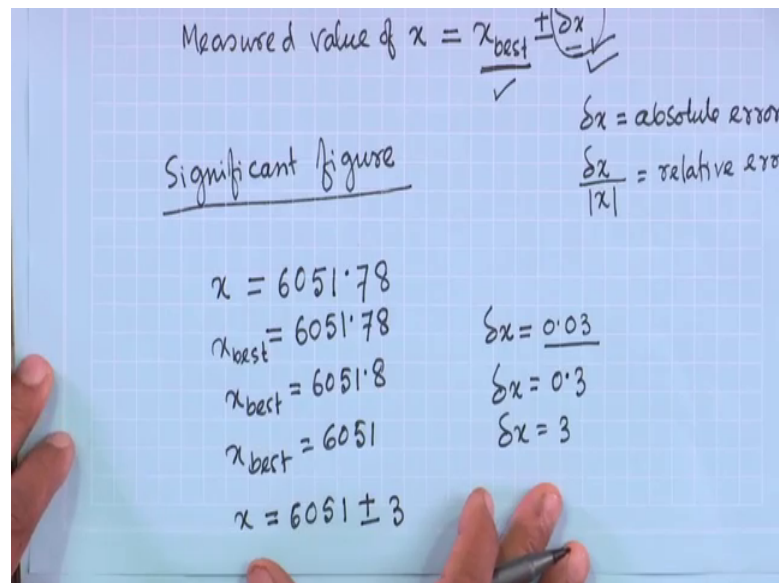 Measured value of x = x_best ± δx
δx = absolute error
δx/|x| = relative err
Significant figure
x = 6051·78
x_best = 6051·78 δx = 0·03
x_best = 6051·8 δx = 0·3
x_best = 6051 δx = 3
x = 6051 ± 3